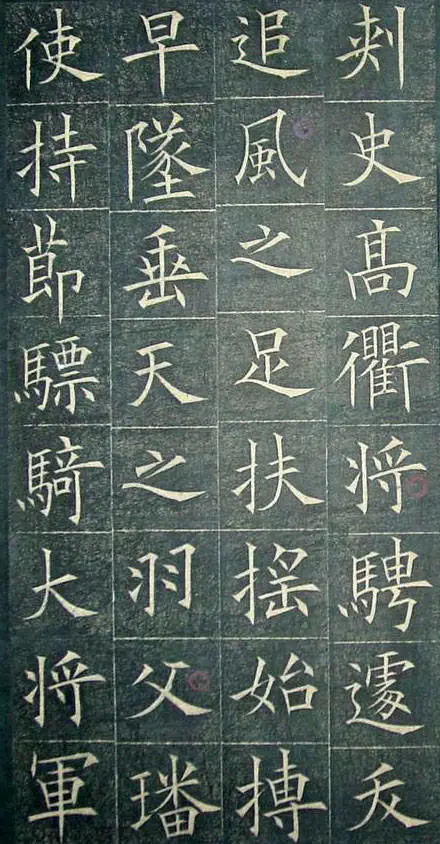 刺史高衢將騁遽夭
追風之足扶搖始搏
早墜垂天之羽父璠
使持節驃騎大將軍